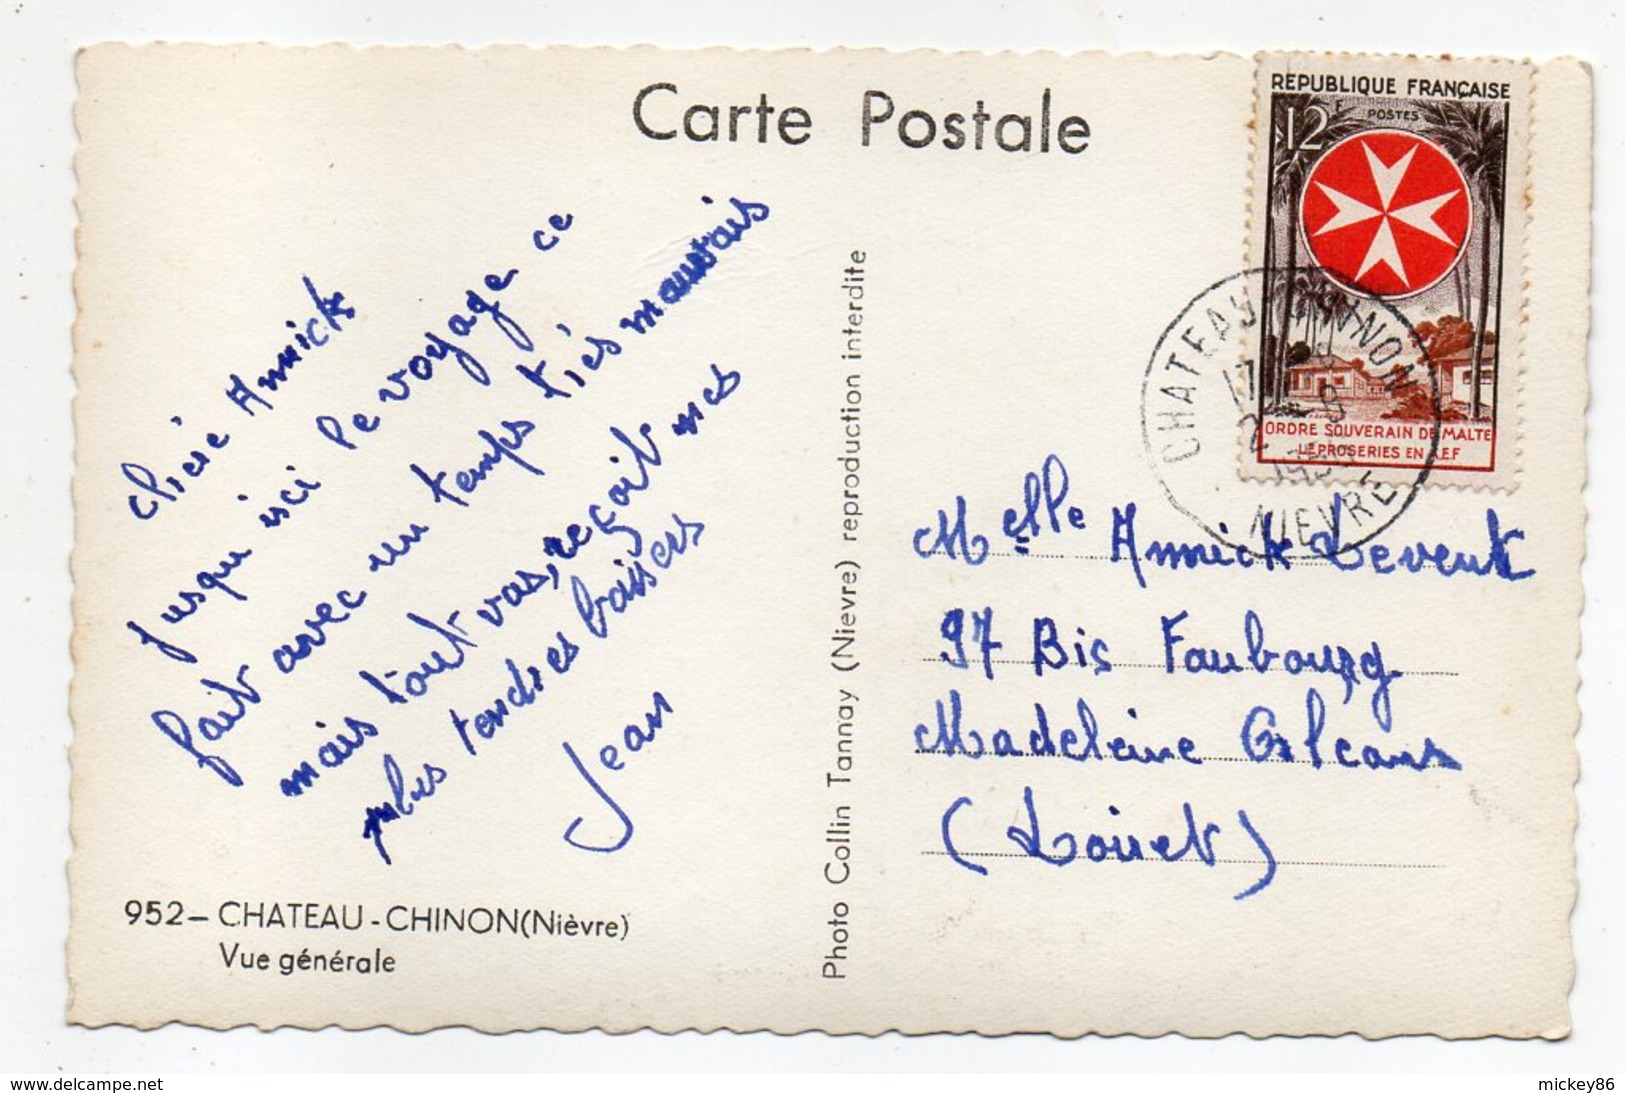 Carte Postale
REPUBLIQUE FRANÇAISE
12F
POSTES
ORDRE SOUVERAIN DE MALTE
LEPROSERIES EN A.E.F
CHATEAU CHINON
17
NIEVRE
chère Annick
jusqu'ici le voyage ce
fait avec un temps très mauvais
mais tout vas, reçoit mes
plus tendres baisers
Jean
952 - CHATEAU - CHINON (Nièvre)
Vue générale
Photo Collin Tannay (Nievre) reproduction interdite
Melle Annick
97 Bis Faubourg
Madeleine Orleans
(Loiret)
www.delcampe.net
mickey86